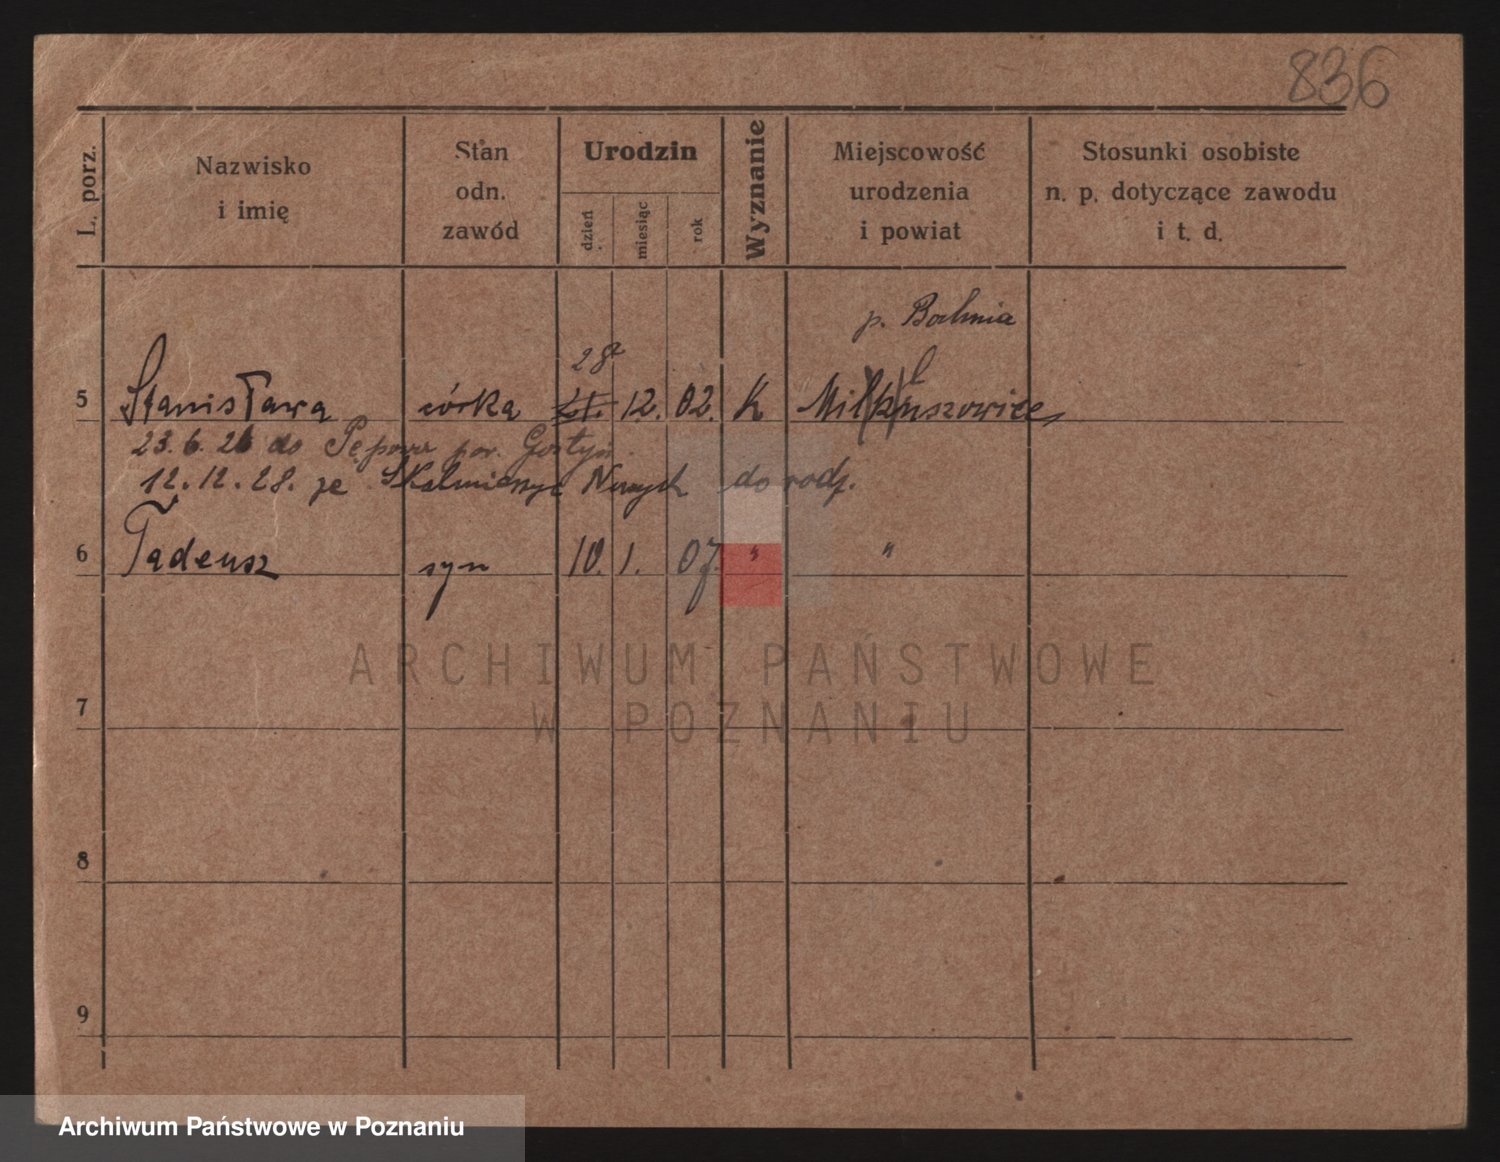 836
L. porz.
Nazwisko
i imię
Stan
odn.
zawód
Urodzin
dzień
miesiąc
rok
Wyznanie
Miejscowość
urodzenia
i powiat
Stosunki osobiste
n. p. dotyczące zawodu
i t. d.
p. Bochnia
28
5 Stanisława córka 12. 02. K
23.6.26 do Pępowa pow. Gostyń.
12.12.28. ze Skalmierzyc Nowych do rodz.
6 Tadeusz syn 10. 1. 07. " "
ARCHIWUM PAŃSTWOWE
W POZNANIU
7
8
9
Archiwum Państwowe w Poznaniu